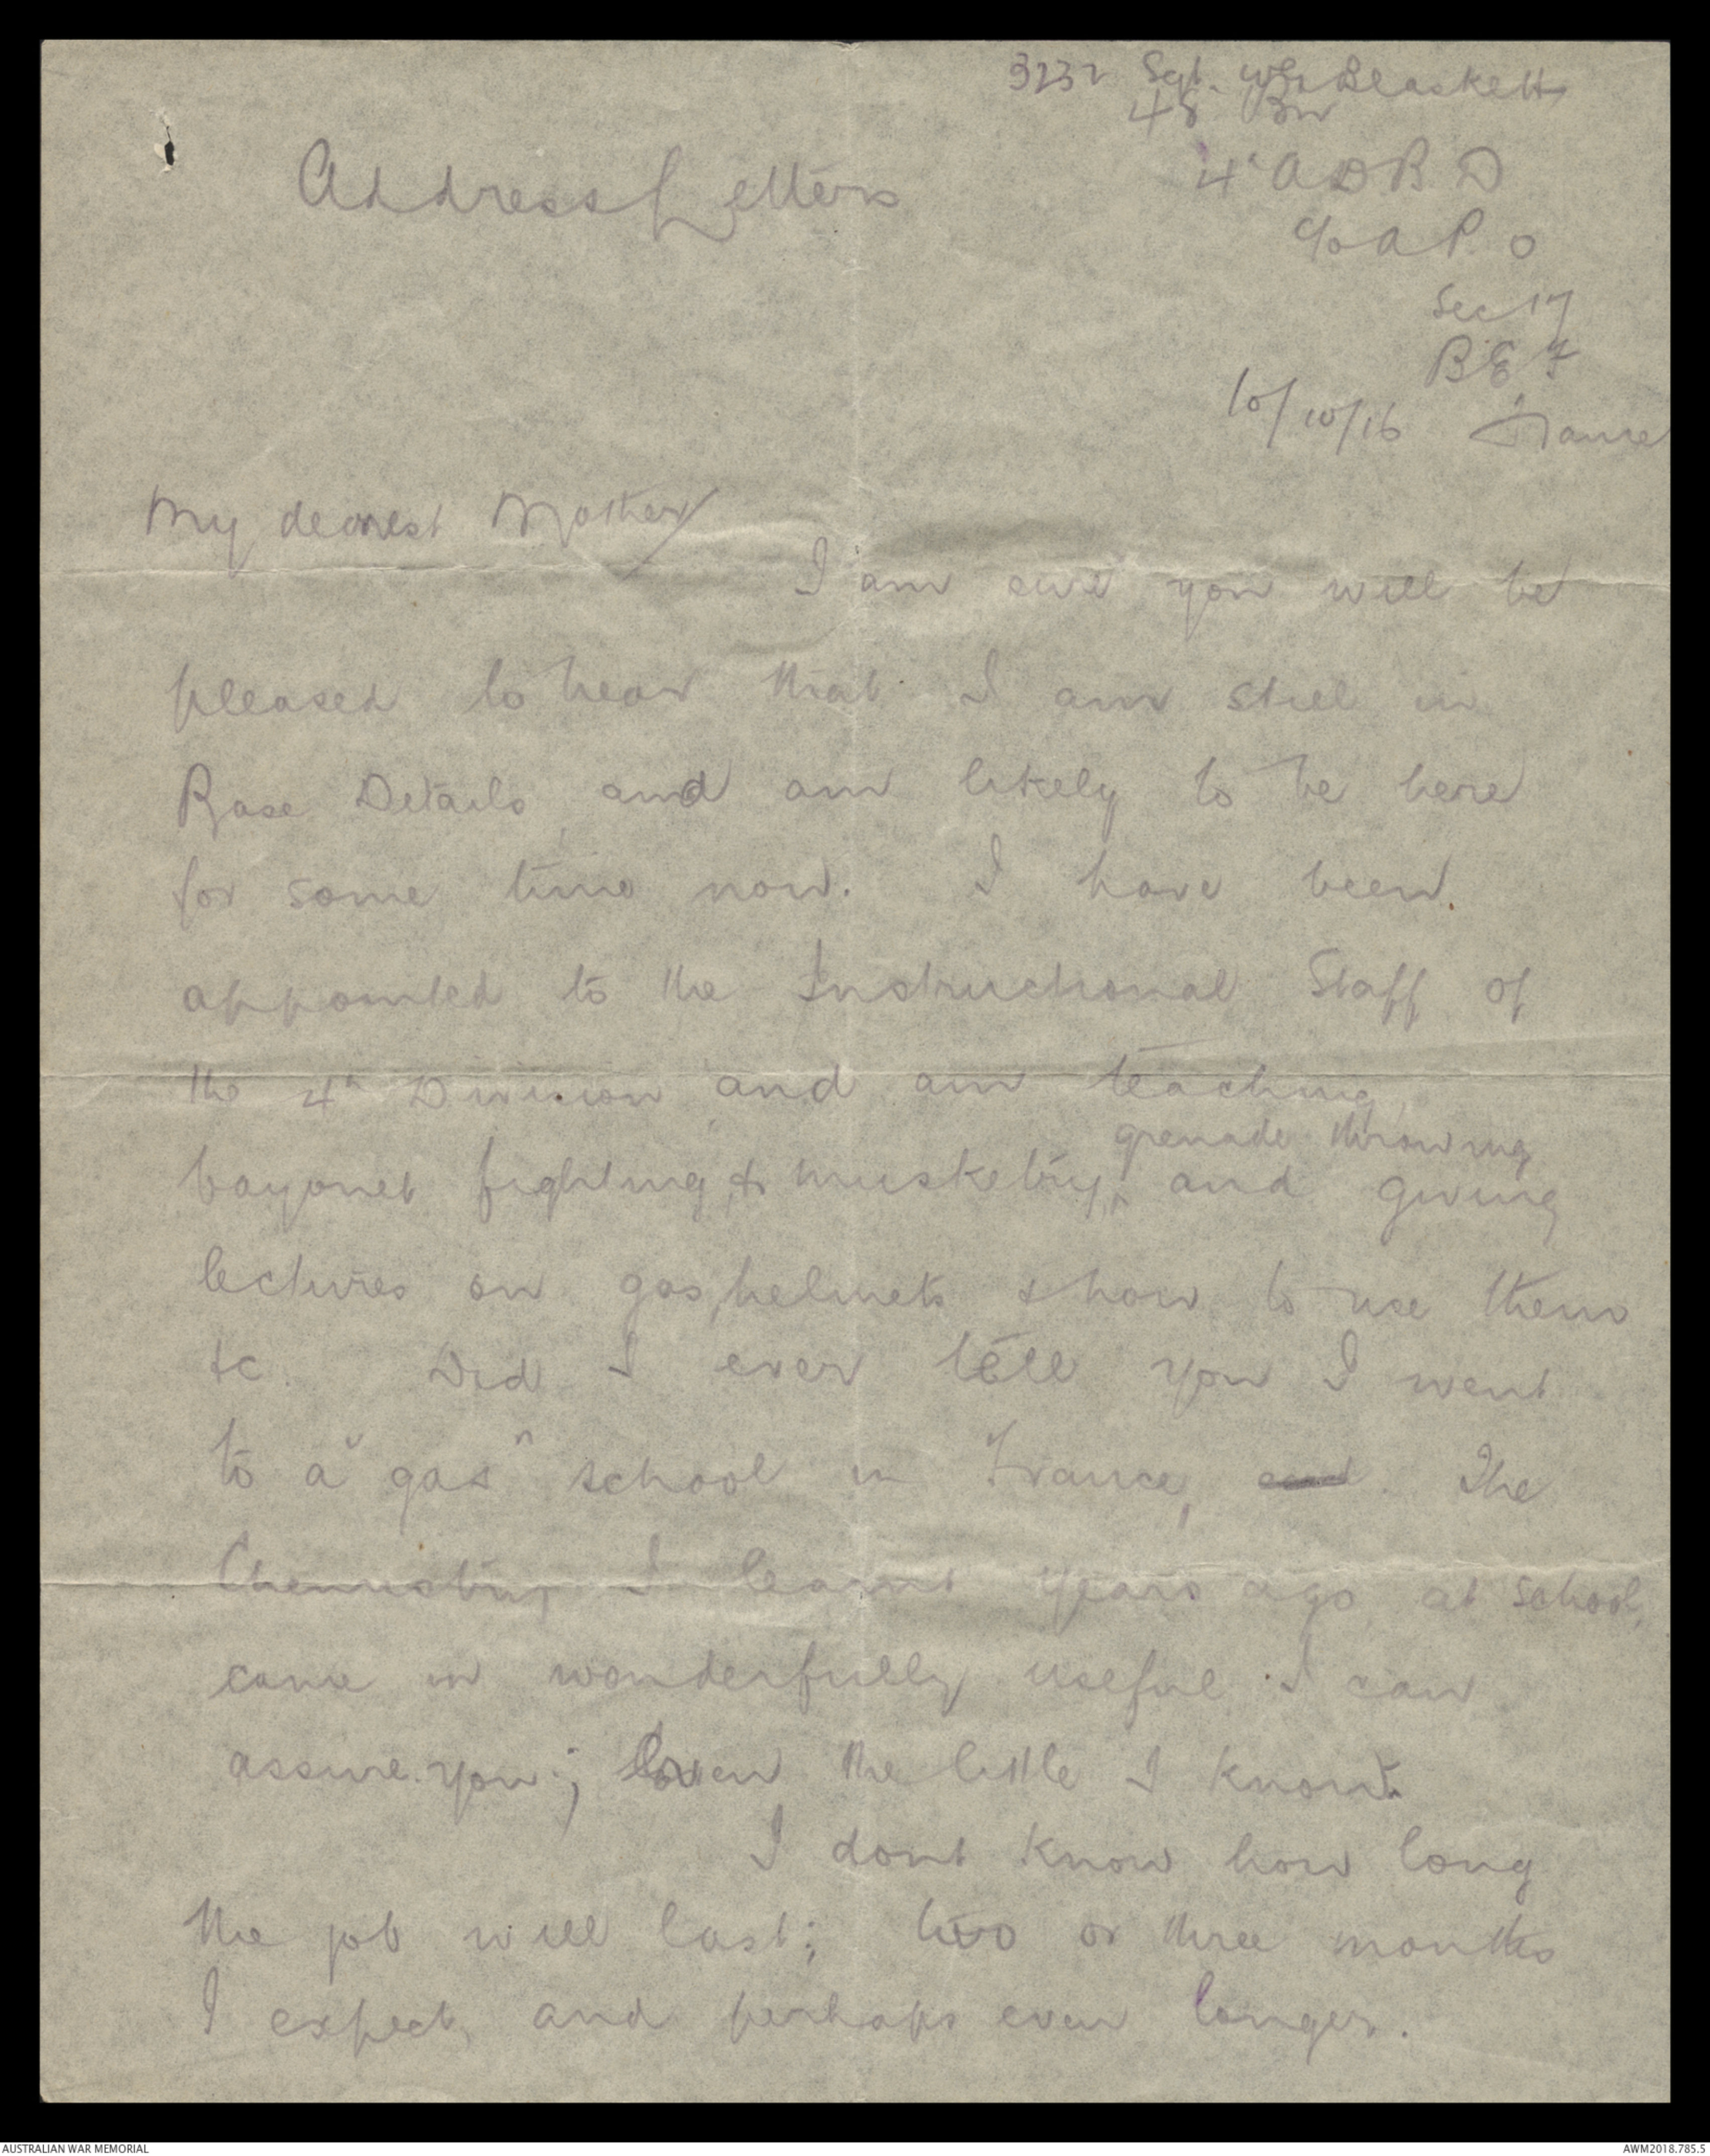 3232 Sgt. WG Blaskett
48 Bn
Address Letters
4 A D B D
c/o A P. O
Sec 17
B E F
10/10/16 France
My dearest Mother/
I am sure you will be
pleased to hear that I am still in
Base Details, and am likely to be here
for some time now. I have been
appointed to the Instructional Staff of
the 4th Division, and am teaching
grenade throwing
bayonet fighting, & musketry, ^ and giving
lectures on gas, helmets & how to use them
&c. Did I ever tell you I went
to a "gas" school in France, and. The
Chemistry I learnt years ago at school,
came in wonderfully useful I can
assure you; Even the little I know.
I dont know how long
the job will last; two or three months
I expect, and perhaps even longer.
AUSTRALIAN WAR MEMORIAL
AWM2018.785.5